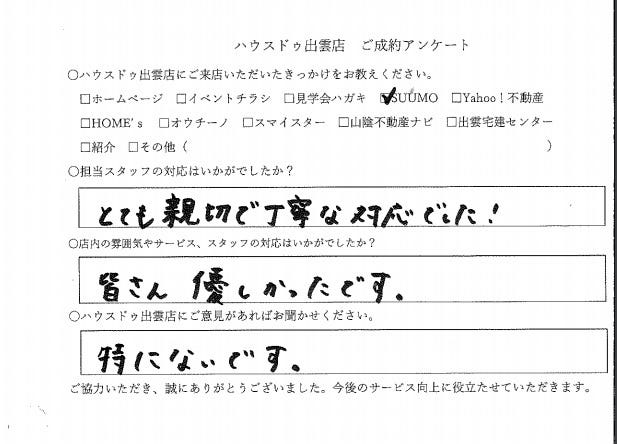 ハウスドゥ出雲店　ご成約アンケート
〇ハウスドゥ出雲店にご来店いただいたきっかけをお教えください。
□ホームページ　□イベントチラシ　□見学会ハガキ　☑SUUMO　□Yahoo！不動産
□HOME's　□オウチーノ　□スマイスター　□山陰不動産ナビ　□出雲宅建センター
□紹介　□その他（　　　　　　　　　　　　　　　　　　　　　　　　）
〇担当スタッフの対応はいかがでしたか？
とても親切で丁寧な対応でした！
〇店内の雰囲気やサービス、スタッフの対応はいかがでしたか？
皆さん優しかったです。
〇ハウスドゥ出雲店にご意見があればお聞かせください。
特にないです。
ご協力いただき、誠にありがとうございました。今後のサービス向上に役立たせていただきます。